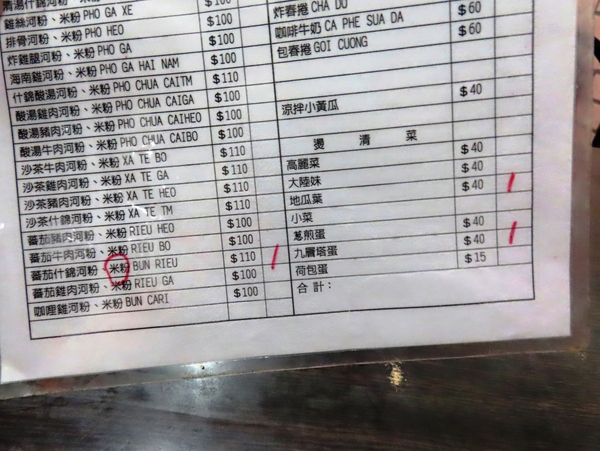 什錦河粉、米粉
雞絲河粉、米粉 PHO GA XE $100
排骨河粉、米粉 PHO HEO $100
炸雞腿河粉、米粉 PHO GA $100
海南雞河粉、米粉 PHO GA HAI NAM $100
什錦酸湯河粉、米粉 PHO CHUA CAITM $110
酸湯雞肉河粉、米粉 PHO CHUA CAIGA $100
酸湯豬肉河粉、米粉 PHO CHUA CAIHEO $100
酸湯牛肉河粉、米粉 PHO CHUA CAIBO $100
沙茶牛肉河粉、米粉 XA TE BO $110
沙茶雞肉河粉、米粉 XA TE GA $100
沙茶豬肉河粉、米粉 XA TE HEO $100
沙茶什錦河粉、米粉 XA TE TM $110
蕃茄豬肉河粉、米粉 RIEU HEO $100
蕃茄牛肉河粉、米粉 RIEU BO $100
蕃茄什錦河粉、米粉 BUN RIEU $110
蕃茄雞肉河粉、米粉 RIEU GA $100
咖哩雞河粉、米粉 BUN CARI $100
炸春捲 CHA DU
咖啡牛奶 CA PHE SUA DA $60
包春捲 GOI CUONG $60
涼拌小黃瓜 $40
燙 清 菜
高麗菜 $40
大陸妹 $40
地瓜葉 $40
小菜
蔥煎蛋 $40
九層塔蛋 $40
荷包蛋 $15
合計：